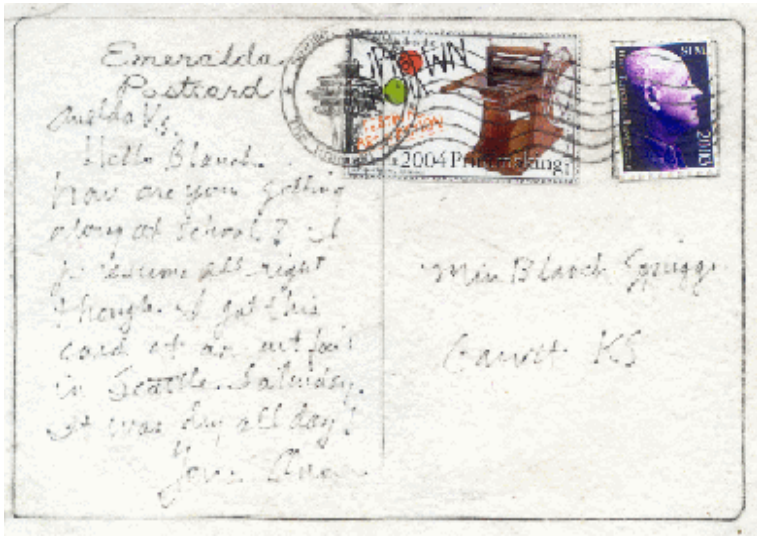 Emeralda
Postcard
Hello Blanch.
how are you getting
along at school? I
presume all right
though. I got this
card at an art fair
in Seattle Saturday.
It was dry all day!
2004 Printmaking
2005
Miss Blanch Spriggs
KS